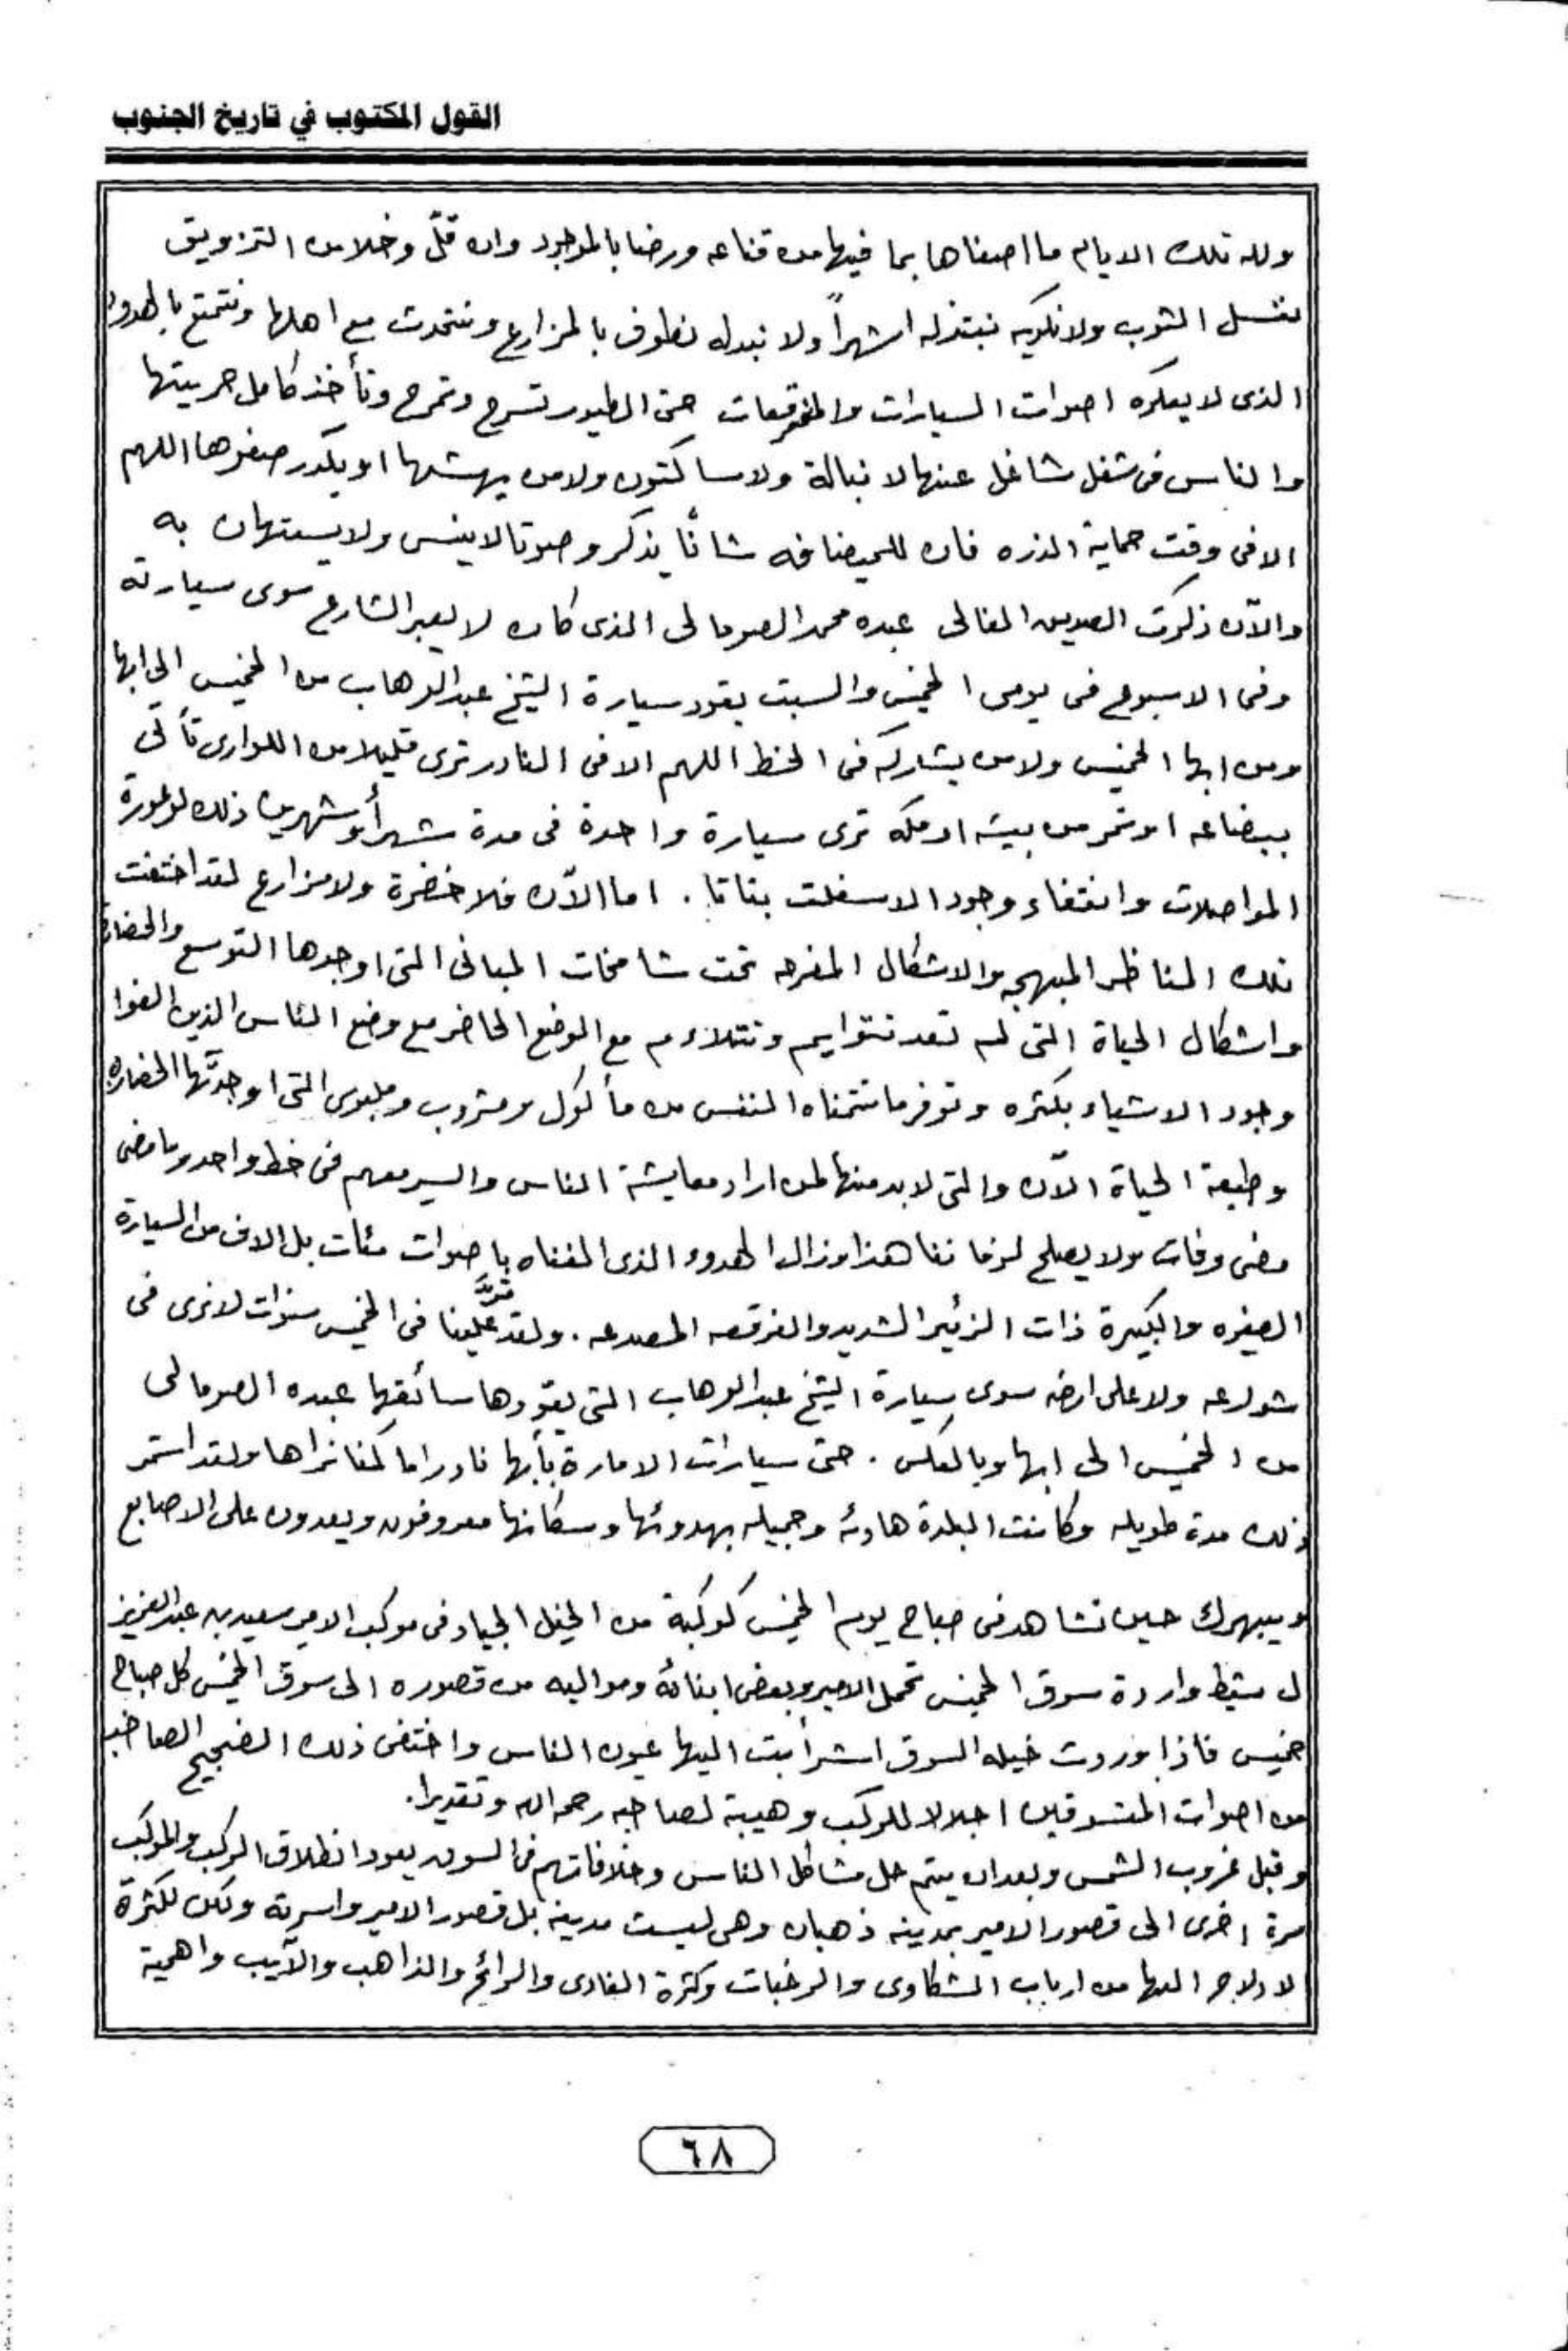 القول المكتوب في تاريخ الجنوب
ولله تلك الايام ما اصفاها بما فيها من قناعه ورضا بالموجود وان قلّ وخلا من التزويق
نغسل الثوب ولا نكويه نبتذله اشهراً ولا نبدله نطوف بالمزارع ونتحدث مع اهلها ونتمتع بالهدوء
الذى لا يعكره اصوات السيارات والمفرقعات حتى الطيور تسرح وتمرح وتأخذ كامل حريتها
والناس فى شغل شاغل عنها لا نبالة ولا ساكتون ولا من يهشها او يكدر صفوها اللهم
الا فى وقت حماية الذره فان للميضافه شانًا يذكر وصوتا لا ينسى ولا يستهان به
والآن ذكرت الصديق الغالى عبده محمد الصومالى الذى كان لا يعبر الشارع سوى سيارته
وفى الاسبوع فى يومى الخميس والسبت يقود سيارة الشيخ عبدالوهاب من الخميس الى ابها
ومن ابها الخميس ولا من يشاركه فى الخط اللهم الا فى النادر ترى قليلا من اللوارى تأتى
ببضاعه او تمر من بيشه او مكه ترى سيارة واحدة فى مدة شهر أو شهرين ذلك لوعورة
المواصلات وانتفاء وجود الاسفلت بتاتا . اما الآن فلا خضرة ولا مزارع لقد اختفت
تلك المناظر المبهجه والاشكال المفرحه تحت شامخات المبانى التى اوجدها التوسع والحضارة
واشكال الحياة التى لم تعد تتوايم وتتلاءم مع الوضع الحاضر مع وضع الناس الذين الفوا
وجود الاشياء بكثره وتوفر ما تتمناه النفس من مأكول ومشروب وملبوس التى اوجدتها الحضاره
وطبعة الحياة الآن والتى لا بد منها لمن اراد معايشة الناس والسير معهم فى خط واحد وما مضى
مضى وفات ولا يصلح لزماننا هذا وزال الهدوء الذى الفناه باصوات مئات بل الاف من السيارة
الصغيره والكبيرة ذات الزئير الشديد والفرقعه المصدعه . ولقد تمرّ علينا فى الخميس سنوات لا نرى فى
شوارعه ولا على ارضه سوى سيارة الشيخ عبدالوهاب التى يقودها سائقها عبده الصومالى
من الخميس الى ابها وبالعكس . حتى سيارات الامارة بأبها نادرا ما كنا نراها ولقد استمر
ذلك مدة طويله وكانت البلدة هادئه وجميله بهدوئها وسكانها معروفون ويعدون على الاصابع
ويبهرك حين تشاهد فى صباح يوم الخميس كوكبة من الخيل الجياد فى موكب الامير سعيد بن عبدالعزيز
ل مشيط واردة سوق الخميس تحمل الامير وبعض ابنائه ومواليه من قصوره الى سوق الخميس كل صباح
خميس فاذا وردت خيله السوق اشرأبت اليها عيون الناس واختفى ذلك الضجيج الصاخب
من اصوات المتسوقين اجلالا للركب وهيبة لصاحبه رحمه الله وتقديرا.
وقبل غروب الشمس وبعد ان يتم حل مشاكل الناس وخلافاتهم فى السوق يعود انطلاق الركب والموكب
مرة اخرى الى قصور الامير بمدينه ذهبان وهى ليست مدينه بل قصور الامير واسرته ولكن لكثرة
لادلاج اليها من ارباب الشكاوى والرغبات وكثرة الغادى والرائح والذاهب والآيب واهمية
٦٨